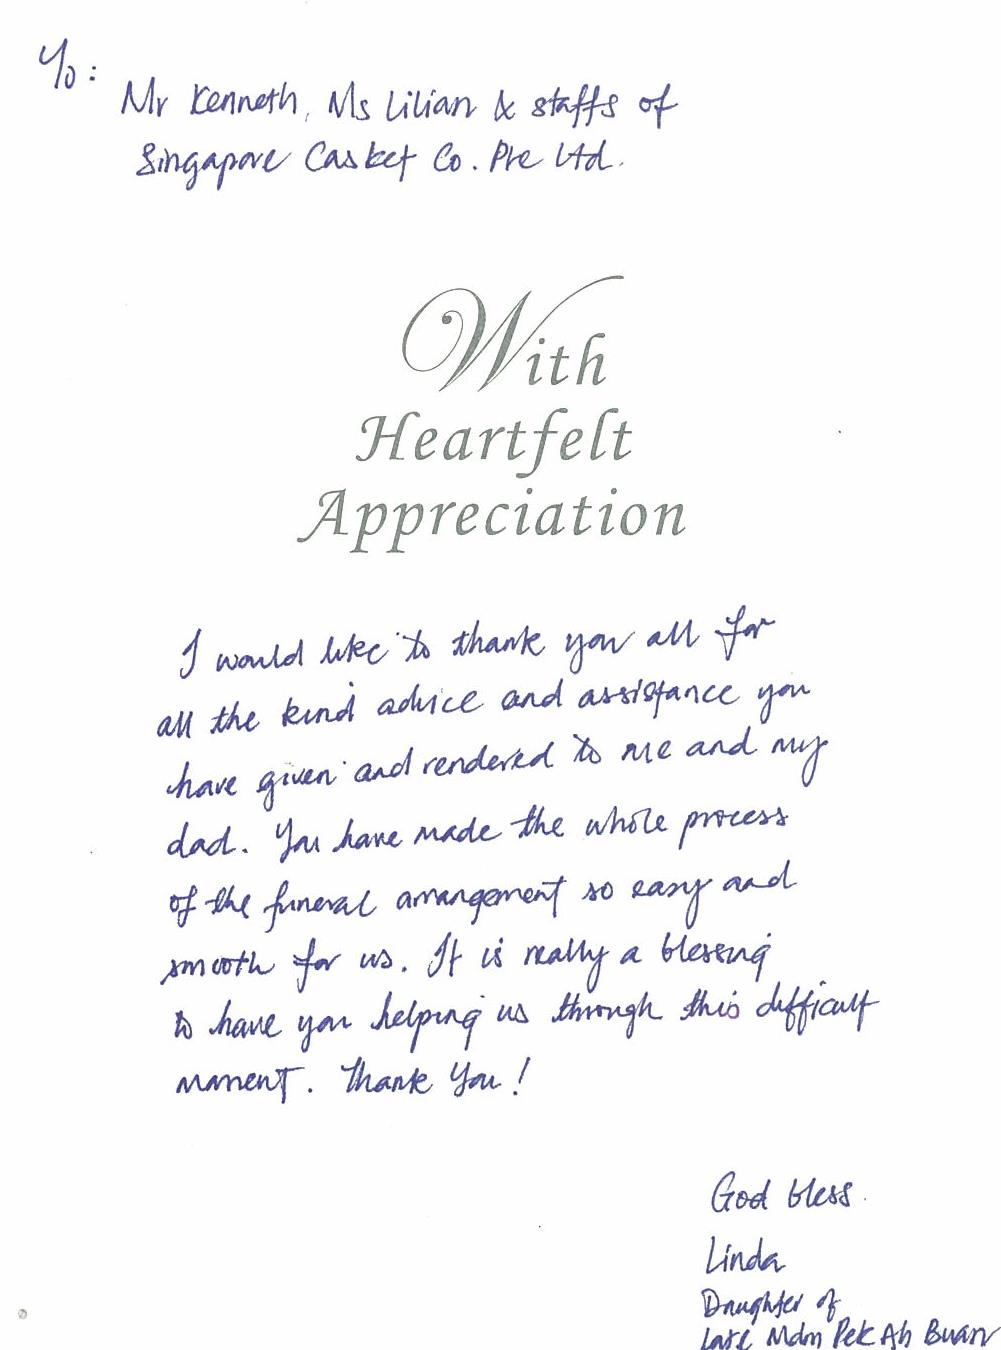 To:
Mr Kenneth, Ms Lilian & staffs of
Singapore Casket Co. Pte Ltd.
With
Heartfelt
Appreciation
I would like to thank you all for
all the kind advice and assistance you
have given and rendered to me and my
dad. You have made the whole process
of the funeral arrangement so easy and
smooth for us. It is really a blessing
to have you helping us through this difficult
moment. Thank You!
God bless.
Linda
Daughter of
Late Mdm Pek Ah Buan